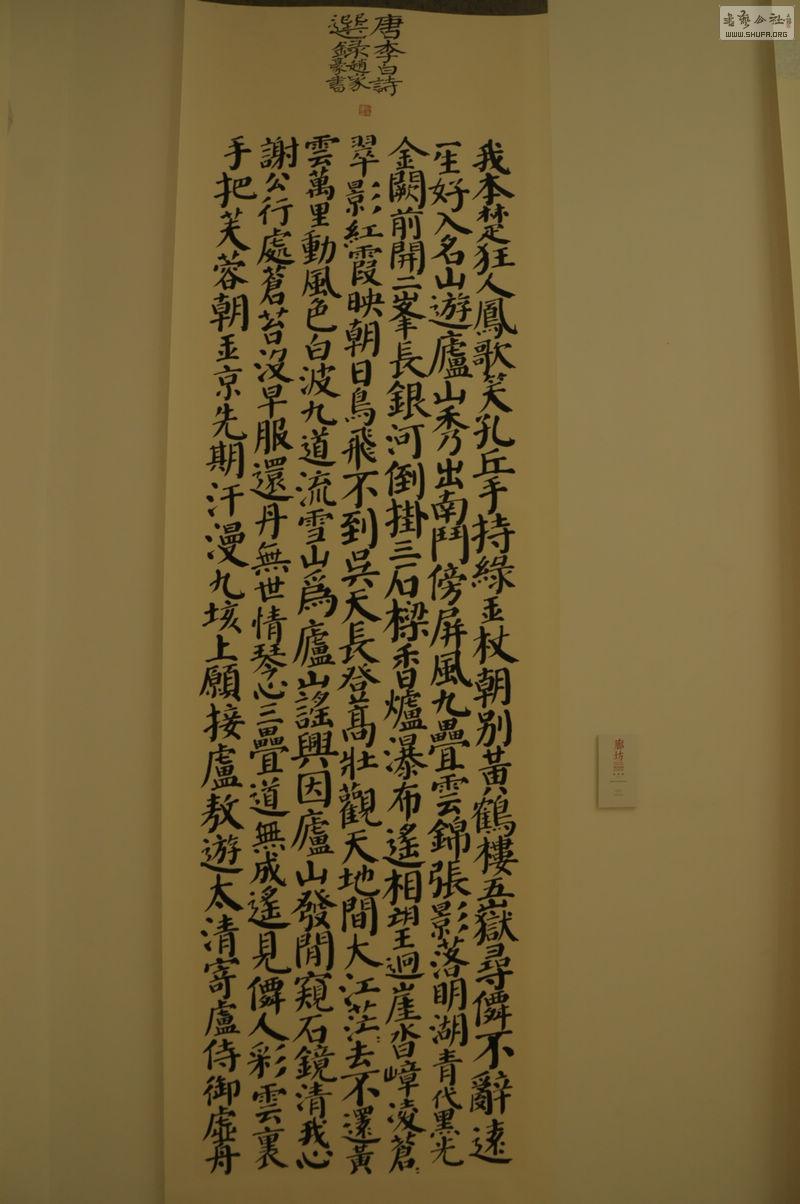 唐李白詩
選録趙家
豪書
我本楚狂人鳳歌笑孔丘手持綠玉杖朝別黃鶴樓五嶽尋僊不辭遠
一生好入名山遊廬山秀出南鬥傍屏風九疊雲錦張影落明湖青代黑光
金闕前開二峯長銀河倒掛三石樑香爐瀑布遙相望迴崖沓嶂凌蒼:
翠影紅霞映朝日鳥飛不到吳天長登高壯觀天地間大江茫:去不還黃
雲萬里動風色白波九道流雪山爲廬山謠興因廬山發閒窺石鏡清我心
謝公行處蒼苔沒早服還丹無世情琴心三疊道無成遙見僊人彩雲裏
手把芙蓉朝玉京先期汗漫九垓上願接盧敖遊太清寄盧侍御虛舟
廊坊
書藝公社
WWW.SHUFA.ORG